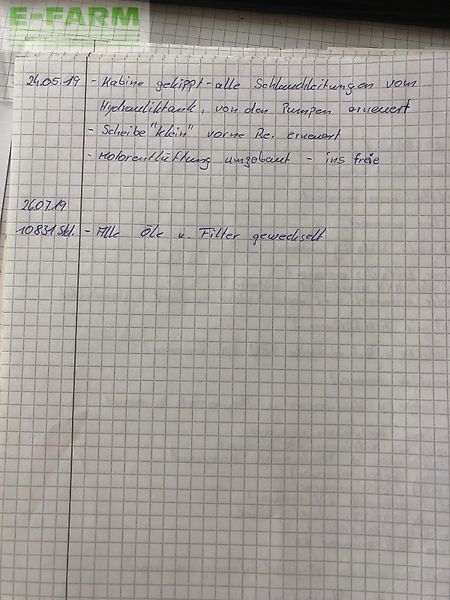 E-FARM
24.05.19 - Kabine gekippt - alle Schlauchleitungen vom
Hydrauliktank, von den Pumpen erneuert
- Scheibe "klein" vorne Re. erneuert
- Motorentlüftung umgebaut - ins freie
26.07.19
10831 Std. - Alle Öle u. Filter gewechselt